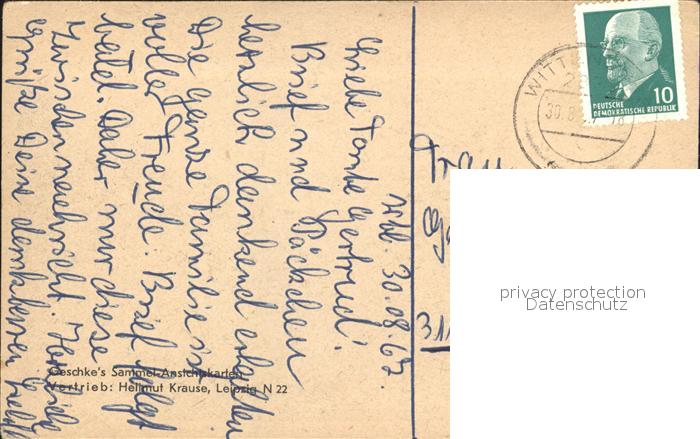 Whl. 30.08.67.
Liebe Tante Gertrud!
Brief und Päckchen
herzlich dankend erhalten
Die ganze Familie ist
voller Freude. Brief folgt
Daher nur diese
Zwischennachricht. Herzliche
Grüße Deine dankbaren
Geschke's Sammel-Ansichtskarten
Vertrieb: Hellmut Krause, Leipzig N 22
WITT
30.8.67
10
DEUTSCHE
DEMOKRATISCHE REPUBLIK
Frau
311
privacy protection
Datenschutz